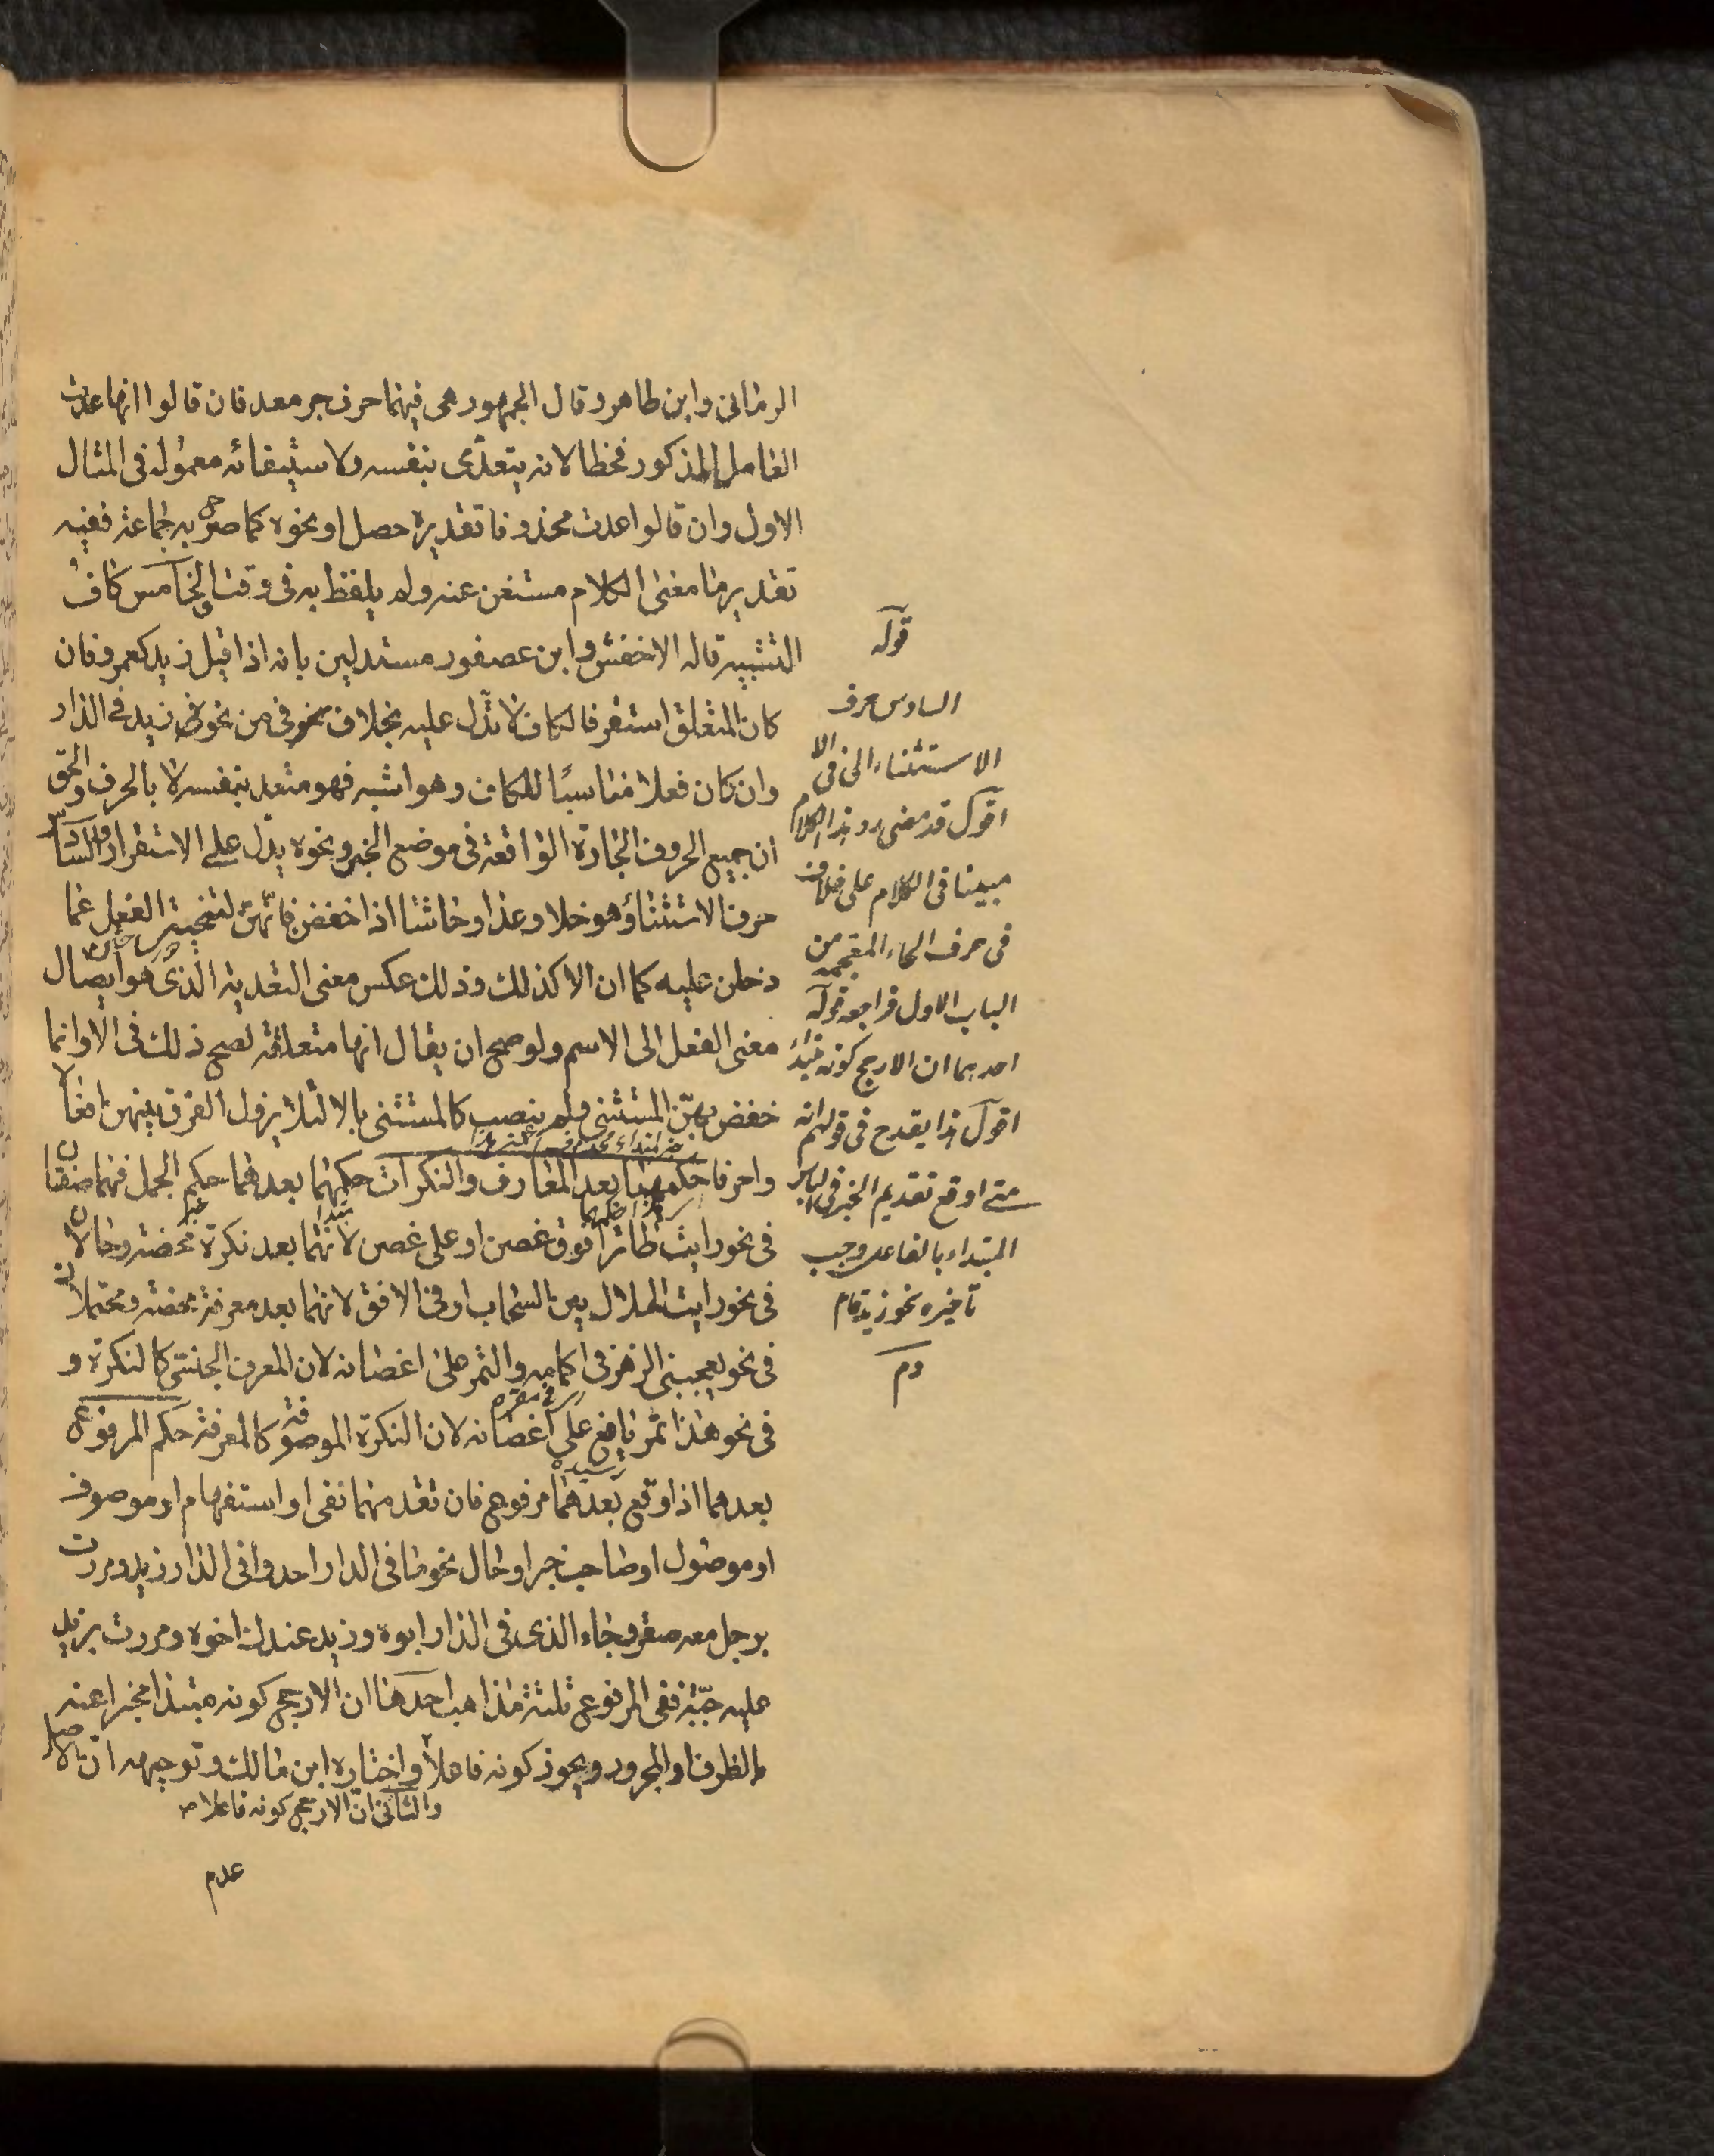 الرمانى وابن طاهر وقال الجمهور هى فيهما حرف جر معد فان قالوا انها عدت
العامل المذكور فخطا لانه يتعدى بنفسه ولاستيفائه معموله فى المثال
الاول وان قالوا عدت محذوفا تقديره حصل او نحوه كما صرح به جماعة ففيه
تقدير ما معنى الكلام مستغن عنه ولم يلفظ به فى وقت والخامس كاف
التشبيه قاله الاخفش وابن عصفور مستدلين بانه اذا قيل زيد كعمرو فان
كان المتعلق استقر فالكاف لا تدل عليه بخلاف نحو فى من نحو زيد فى الدار
وان كان فعلا مناسبا للكاف وهو اشبه فهو متعد بنفسه لا بالحرف والحق
ان جميع الحروف الجارة الواقعة فى موضع الخبر ونحوه يدل على الاستقرار والسادس
حرف الاستثناء وهو خلا وعدا وحاشا اذا خفضن فانهن لتنحية الفعل عما
دخلن عليه كما ان الا كذلك وذلك عكس معنى التعدية الذى هو ايصال
معنى الفعل الى الاسم ولو صح ان يقال انها متعلقة لصح ذلك فى الا وانما
خفض بهن المستثنى ولم ينصب كالمستثنى بالا لئلا يزول الفرق بينهن افعالا
واحرفا حكمهما بعد المعارف والنكرات حكمهما بعدهما حكم الجمل فهما صفتان
فى نحو رايت طائرا فوق غصن او على غصن لانهما بعد نكرة محضة وحالان
فى نحو رايت الهلال بين السحاب او فى الافق لانهما بعد معرفة محضة ومحتملان
فى نحو يعجبنى الزهر فى اكمامه والثمر على اغصانه لان المعرف الجنسى كالنكرة و
فى نحو هذا ثمر يانع على اغصانه لان النكرة الموصوفة كالمعرفة حكم المرفوع
بعدهما اذا وقع بعدهما مرفوع فان تقدمهما نفى او استفهام او موصوف
او موصول او صاحب خبر او حال نحو ما فى الدار احد وافى الدار زيد ومررت
برجل معه صقر وجاء الذى فى الدار ابوه وزيد عندك اخوه ومررت بزيد
عليه جبة ففى المرفوع ثلثة مذاهب احدها ان الارجح كونه مبتدا مخبرا عنه
بالظرف او المجرور ويجوز كونه فاعلا واختاره ابن مالك وتوجيهه ان الاصل
والثانى ان الارجح كونه فاعلا
عدم
قوله
السادس حرف
الاستثناء الى فى الا
اقول قد مضى رد هذا الكلام
مبينا فى الكلام على خلا
فى حرف الخاء المعجمة من
الباب الاول فراجعه قوله
احدهما ان الارجح كونه مبتدا
اقول هذا يقدح فى قولهم انه
متى اوقع تقديم الخبر فى لبس
المبتداء بالفاعل وجب
تاخيره نحو زيد قام
دم